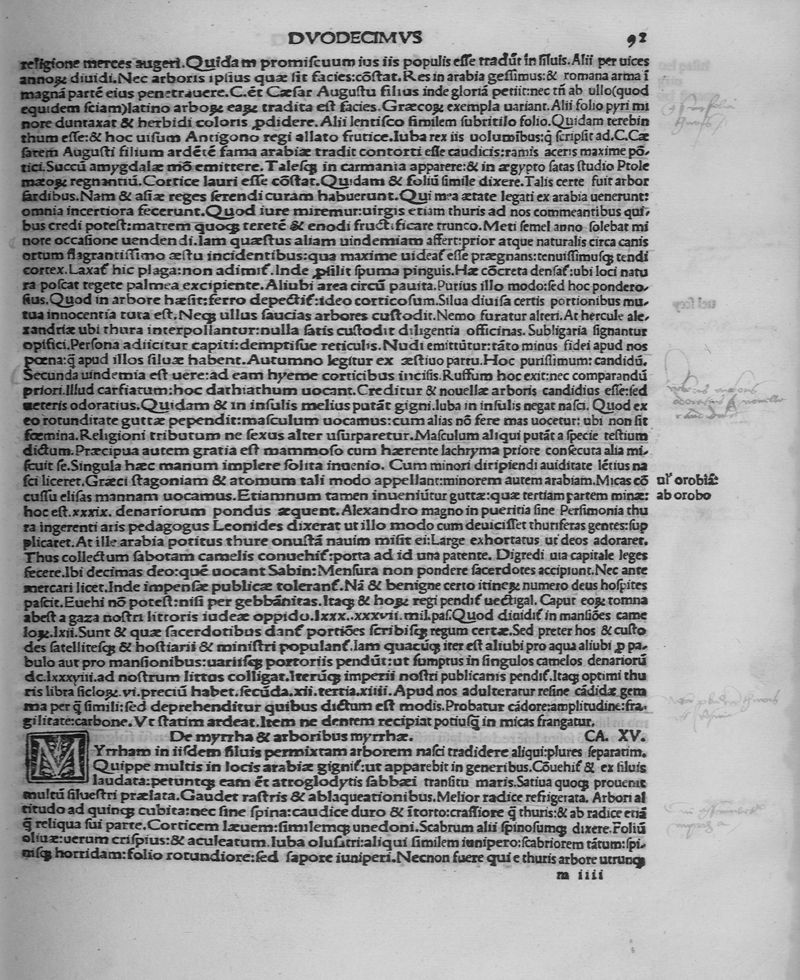 DVODECIMVS 92
religione merces augeri. Quidam promiscuum ius iis populis esse tradūt in siluis. Alii per uices
annoꝝ diuidi. Nec arboris ipsius quæ sit facies: cōstat. Res in arabia gessimus: & romana arma ī
magnā partē eius penetrauere. C. ēt Cæsar Augustu filius inde gloriā petiit: nec tñ ab ullo (quod
equidem sciam) latino arboꝝ eaꝝ tradita est facies. Græcoꝝ exempla uariant. Alii folio pyri mi
nore duntaxat & herbidi coloris ꝓdidere. Alii lentisco similem subrutilo folio. Quidam terebin
thum esse: & hoc uisum Antigono regi allato frutice. Iuba rex iis uolumībus: q̄ scripsit ad. C. Cæ
sarem Augusti filium ardētē fama arabiæ tradit contorti esse caudicis: ramis aceris maxime pō/
tici. Succū amygdalæ mō emittere. Talesq; in carmania apparere: & in ægypto satas studio Ptole
mæoꝝ regnantiū. Cortice lauri esse cōstat. Quidam & foliū simile dixere. Talis certe fuit arbor
sardibus. Nam & asiæ reges serendi curam habuerunt. Qui mea ætate legati ex arabia uenerunt:
omnia incertiora fecerunt. Quod iure miremur: uirgis etiam thuris ad nos commeantibus qui/
bus credi potest: matrem quoq; teretē & enodi fruct: ficare trunco. Meti semel anno solebat mi
nore occasione uendendi. Iam quæstus aliam uindemiam affert: prior atque naturalis circa canis
ortum flagrantissimo æstu incidentibus: qua maxime uideat̄ esse prægnans: tenuissimusq; tendi
cortex. Laxat̄ hic plaga: non adimit̄. Inde ꝓsilit spuma pinguis. Hæc cōcreta densat̄: ubi loci natu
ra poscat tegete palmea excipiente. Aliubi area circū pauita. Purius illo modo: sed hoc pondero/
sius. Quod in arbore hæsit: ferro depectit̄: ideo corticosum. Silua diuisa certis portionibus mu/
tua innocentia tuta est. Neq; ullus saucias arbores custodit. Nemo furatur alteri. At hercule ale/
xandriæ ubi thura interpollantur: nulla satis custodit diligentia officinas. Subligaria signantur
opifici. Persona adiicitur capiti: demptisue reticulis. Nudi emittūtur: tāto minus fidei apud nos
pœna: q̄ apud illos siluæ habent. Autumno legitur ex æstiuo partu. Hoc purissimum: candidū.
Secunda uindemia est uere: ad eam hyeme corticibus incisis. Ruffum hoc exit: nec comparandū
priori. Illud carfiatum: hoc dathiathum uocant. Creditur & nouellæ arboris candidius esse: sed
ueteris odoratius. Quidam & in insulis melius putāt gigni. Iuba in insulis negat nasci. Quod ex
eo rotunditate guttæ pependit: masculum uocamus: cum alias nō fere mas uocetur: ubi non sit
fœmina. Religioni tributum ne sexus alter usurparetur. Masculum aliqui putāt a specie testium
dictum. Præcipua autem gratia est mammoso cum hærente lachryma priore consecuta alia mi/
scuit se. Singula hæc manum implere solita inuenio. Cum minori diripiendi auiditate lētius na
sci liceret. Græci stagoniam & atomum tali modo appellant: minorem autem arabiam. Micas cō
cussu elisas mannam uocamus. Etiamnum tamen inueniūtur guttæ: quæ tertiam partem minæ:
hoc est. xxxix. denariorum pondus æquent. Alexandro magno in pueritia sine Persimonia thu
ra ingerenti aris pedagogus Leonides dixerat ut illo modo cum deuicisset thuriferas gentes: sup
plicaret. At ille arabia potitus thure onustā nauim misit ei: Large exhortatus ut deos adoraret.
Thus collectum sabotam camelis conuehit̄: porta ad id una patente. Digredi uia capitale leges
fecere. Ibi decimas deo: quē uocant Sabin: Mensura non pondere sacerdotes accipiunt. Nec ante
mercari licet. Inde impensæ publicæ tolerant̄. Nā & benigne certo itineꝝ numero deus hospites
pascit. Euehi nō potest: nisi per gebbānitas. Itaq; & hoꝝ regi pendit̄ uectigal. Caput eoꝝ tomna
abest a gaza nostri littoris iudeæ oppido. lxxx. .xxxvii. mil. pas. Quod diuidit̄ in mansiōes came
loꝝ. lxii. Sunt & quæ sacerdotibus dant̄ portiōes scribisq; regum certæ. Sed preter hos & custo
des satellitesq; & hostiarii & ministri populant̄. Iam quacūq; iter est aliubi pro aqua aliubi ꝓ pa/
bulo aut pro mansionibus: uariisq; portoriis pendūt: ut sumptus in singulos camelos denariorū
dc. lxxxviii. ad nostrum littus colligat. Iterūq; imperii nostri publicanis pendit̄. Itaq; optimi thu
ris libra sicloꝝ. vi. preciū habet. secūda. xii. tertia. xiiii. Apud nos adulteratur resine cādidæ gem
ma per q̄ simili: sed deprehenditur quibus dictum est modis. Probatur cādore: amplitudine: fra/
gilitate: carbone. Vt statim ardeat. Item ne dentem recipiat potiusq; in micas frangatur.
De myrrha & arboribus myrrhæ. CA. XV.
MYrrham in iisdem siluis permixtam arborem nasci tradidere aliqui: plures separatim.
Quippe multis in locis arabiæ gignit̄: ut apparebit in generibus. Cōuehit̄ & ex siluis
laudata: petuntq; eam ēt atroglodytis sabbæi transitu maris. Satiua quoq; prouenit
multū siluestri prælata. Gaudet rastris & ablaqueationibus. Melior radice refrigerata. Arbori al
titudo ad quinq; cubita: nec sine spina: caudice duro & ītorto: crassiore q̄ thuris: & ab radice etiā
q̄ reliqua sui parte. Corticem læuem: similemq; unedoni. Scabrum alii spinosumq; dixere. Foliū
oliuæ: uerum crispius: & aculeatum. Iuba olusatri: aliqui similem iunipero: scabriorem tātum: spi/
nisq; horridam: folio rotundiore: sed sapore iuniperi. Necnon fuere qui e thuris arbore utrunq;
m iiii
ul' orobiſ:
ab orobo